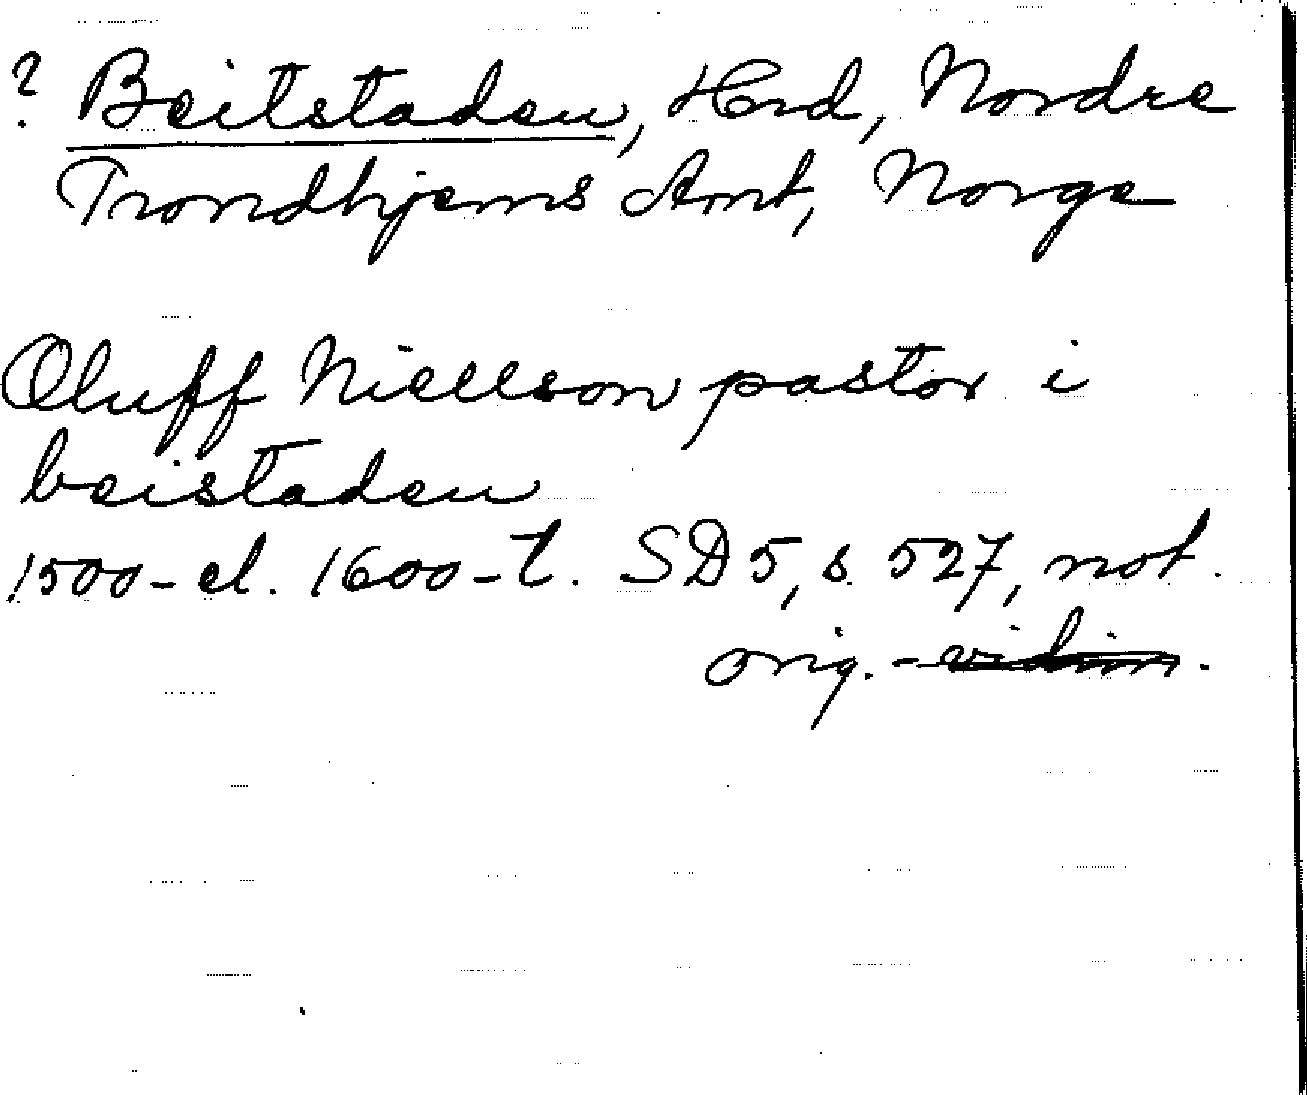 ? Beitstaden, Hrd, Nordre
Trondhjems Amt, Norge
Oluff Niellson pastor i
beistaden
1500- el. 1600-t. SD 5, s. 527, not.
orig. - vidim.